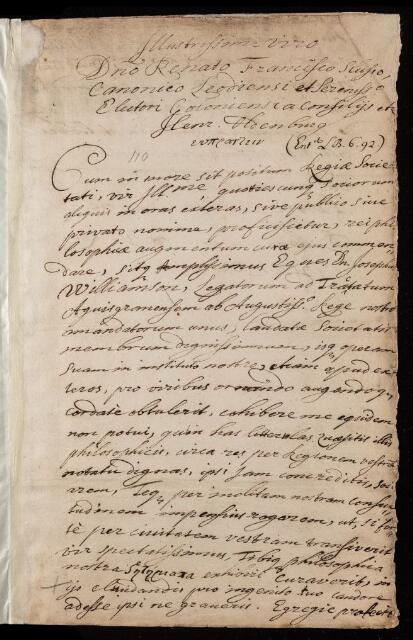 Illustrissimo viro
Dno Renato Francisco Slusio
Canonico Leodiensi et Sereniss.o
Electori Coloniensi a Consiliis etc
Henr. Oldenburg
ευπραττειν (Ent.d LB. 6. 92)
110
Cum in more sit positum Regiæ Socie-
tati, vir Ill.me quotiescunq Sociorum
aliquis in oras exteras, sive publico sive
privato nomine, proficiscitur, rei phi-
losophicæ augmentum curæ ejus commen-
dare, sitq Amplissimus Eques Dn. Josephus
Williamson, Legatorum ad Tractatum
Aquisgranensem ab Augustiss.o Rege nostro
amandatorum unus, laudatæ Societatis
membrum dignissimum, isq operam
suam in instituto nostro, etiam apud ex-
teros, pro viribus ornando augendoq
cordate obtulerit, cohibere me equidem
non potui, quin has litterulas quæsitis illis
philosophicis, circa res per Regionem vestra
notatu dignas, ipsi jam concreditis, soci-
arem, Teq, per insolitam nostram consue-
tudinem impensius rogarem, ut, si for-
tè per civitatem vestram transiverit
vir spectatissimus, Tibiq philosophica
nostra exhiberi curaverit, in
ijs elucidandis pro ingenito tuo candore
adesse ipsi ne graveris. Egregie profecto